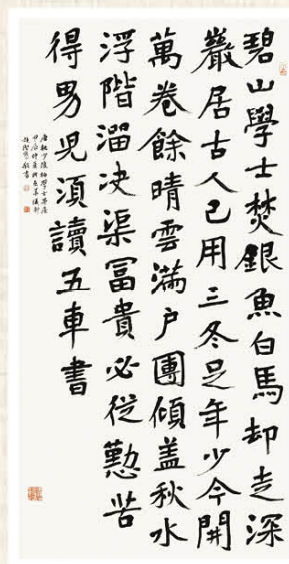 碧山學士焚銀魚白馬却走深
巖居古人已用三冬足年少今開
萬卷餘晴雲滿户團傾盖秋水
浮階溜决渠冨貴必從勤苦
得男兒須讀五車書